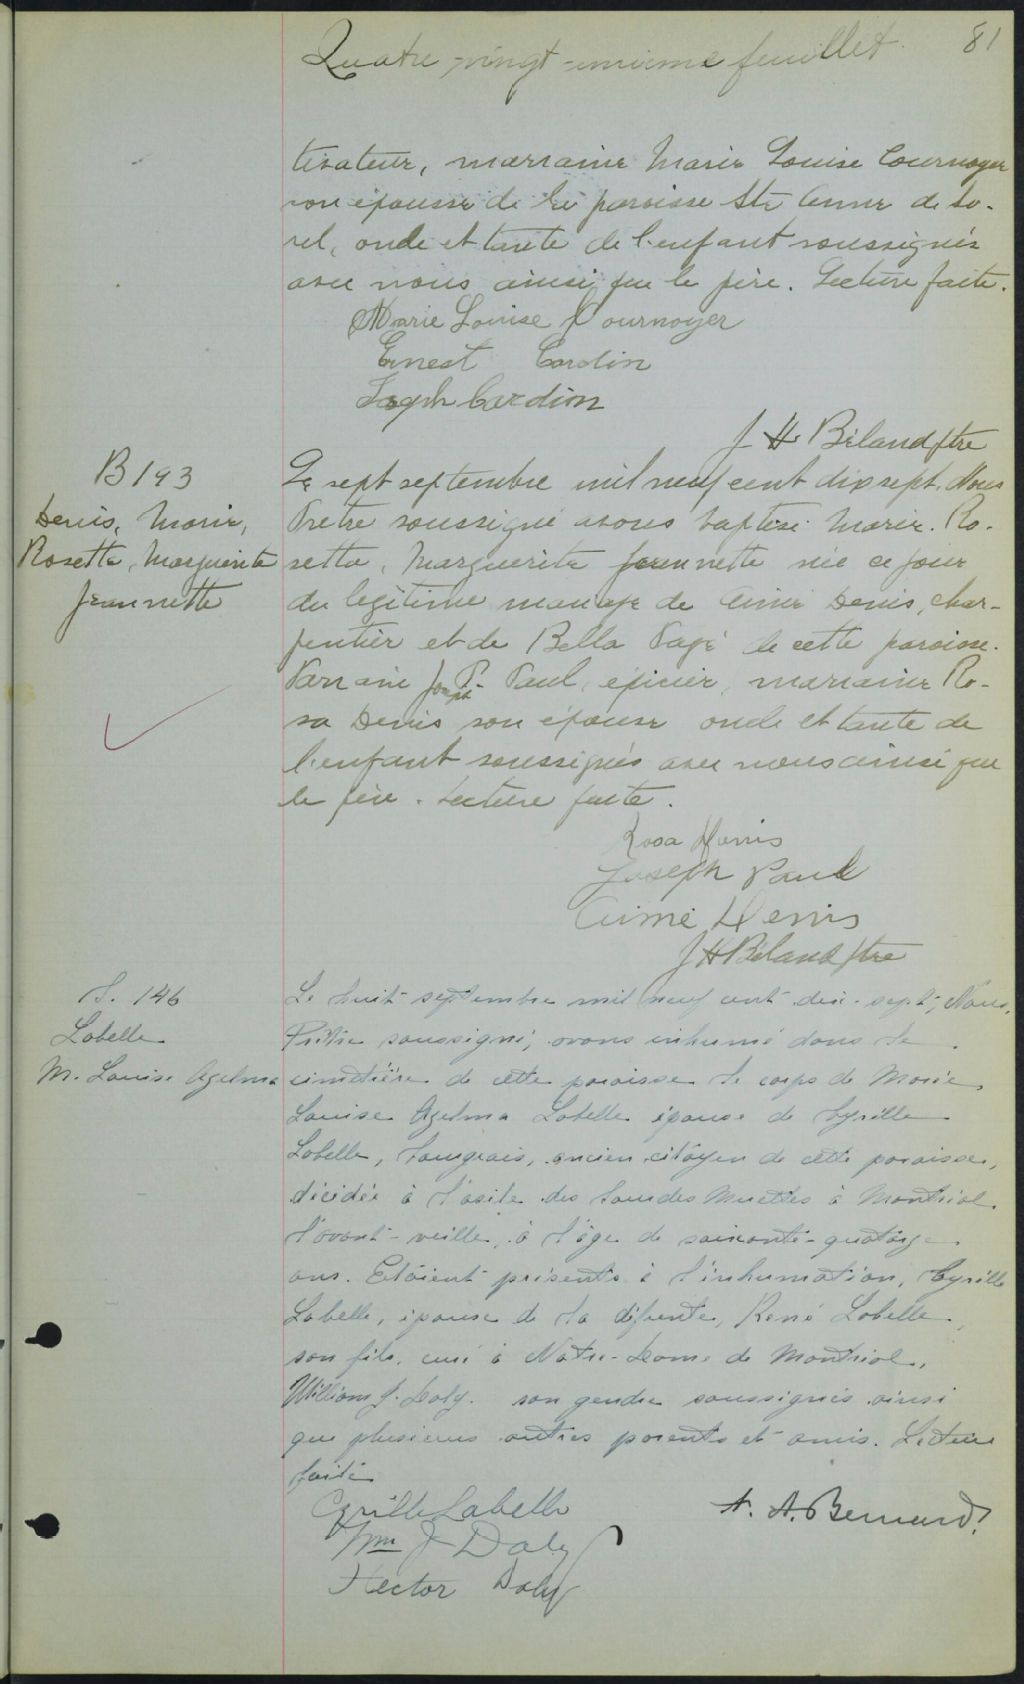 81
Quatre-vingt-unième feuillet
tisateur, marraine Marie Louise Cournoyer
son épouse de la paroisse Ste Anne de So-
rel, oncle et tante de l'enfant soussignés
avec nous ainsi que le père. Lecture faite.
Marie Louise Cournoyer
Ernest Cardin
Joseph Cardin
J H Béland ptre
B 193
Denis, Marie,
Rosetta, Marguerite
Jeannette
Le sept septembre mil neuf cent dix sept, Nous
Pretre soussigné avons baptisé Marie. Ro-
setta, Marguerite Jeannette née ce jour
du légitime mariage de Aimé Denis, char-
pentier et de Bella Pagé de cette paroisse.
Parrain Joseph P. Paul, épicier, marraine Ro-
sa Denis son épouse oncle et tante de
l'enfant soussignés avec nous ainsi que
le père. Lecture faite.
Rosa Denis
Joseph Paul
Aimé Denis
J H Béland ptre
S. 146
Labelle
M. Louise Azelma
Le huit septembre mil neuf cent dix-sept, Nous,
Prêtre soussigné, avons inhumé dans le
cimetière de cette paroisse le corps de Marie
Louise Azelma Labelle épouse de Cyrille
Labelle, bourgeois, ancien citoyen de cette paroisse,
décédée à l'asile des Sourdes Muettes à Montréal
l'avant-veille, à l'âge de soixante-quatorze
ans. Etaient présents à l'inhumation, Cyrille
Labelle, époux de la défunte, René Labelle,
son fils, curé à Notre-Dame de Montréal,
William J. Daly. son gendre soussignés ainsi
que plusieurs autres parents et amis. Lecture
faite
Cyrille Labelle
A. A. Bernard.
Wm J Daly
Hector Daly